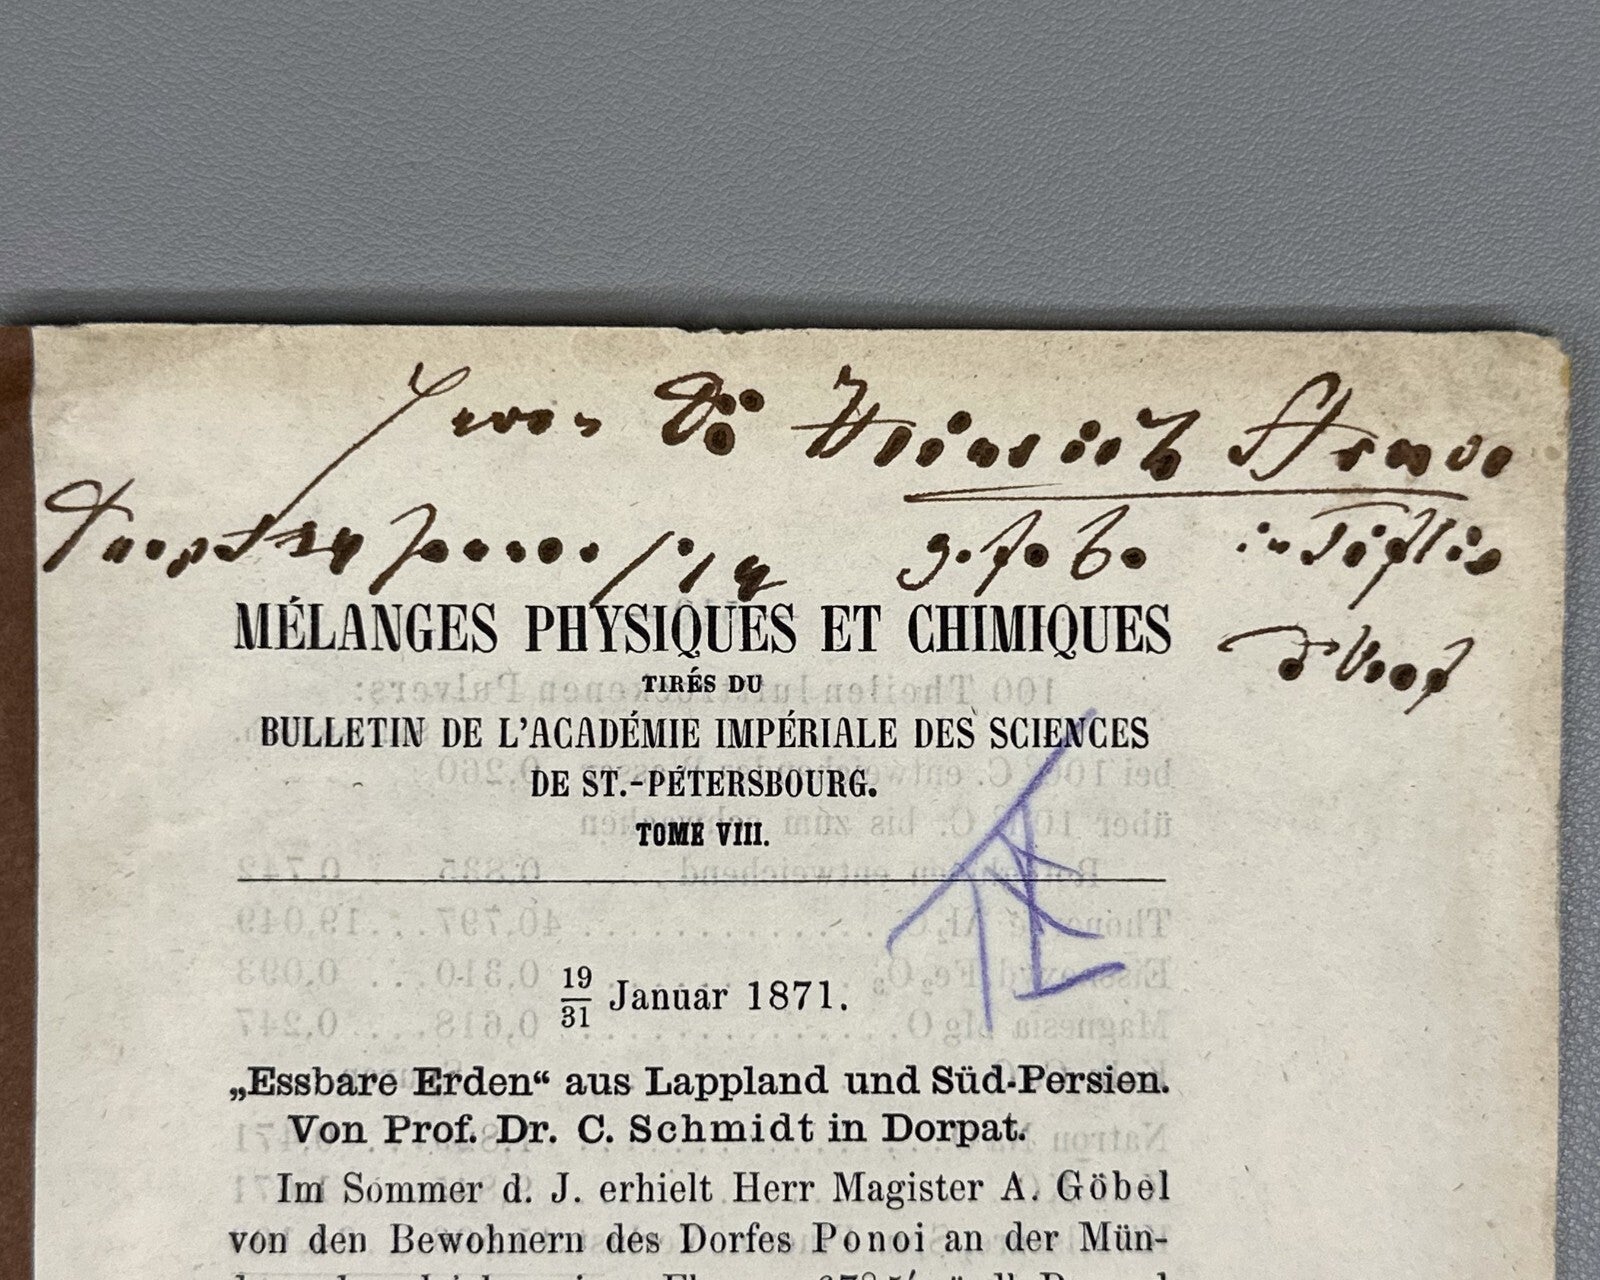 Dr Heinrich Struve
in Tiflis
MÉLANGES PHYSIQUES ET CHIMIQUES
TIRÉS DU
BULLETIN DE L'ACADÉMIE IMPÉRIALE DES SCIENCES
DE ST.-PÉTERSBOURG.
TOME VIII.
19/31 Januar 1871.
„Essbare Erden“ aus Lappland und Süd-Persien.
Von Prof. Dr. C. Schmidt in Dorpat.
Im Sommer d. J. erhielt Herr Magister A. Göbel
von den Bewohnern des Dorfes Ponoi an der Mün-